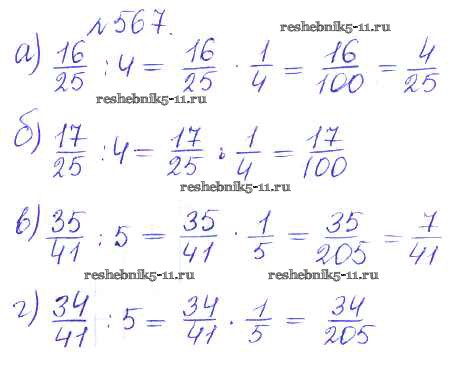 №567. reshebnik5-11.ru
а) 16/25 : 4 = 16/25 · 1/4 = 16/100 = 4/25
reshebnik5-11.ru
б) 17/25 : 4 = 17/25 · 1/4 = 17/100
reshebnik5-11.ru
в) 35/41 : 5 = 35/41 · 1/5 = 35/205 = 7/41
reshebnik5-11.ru reshebnik5-11.ru
г) 34/41 : 5 = 34/41 · 1/5 = 34/205